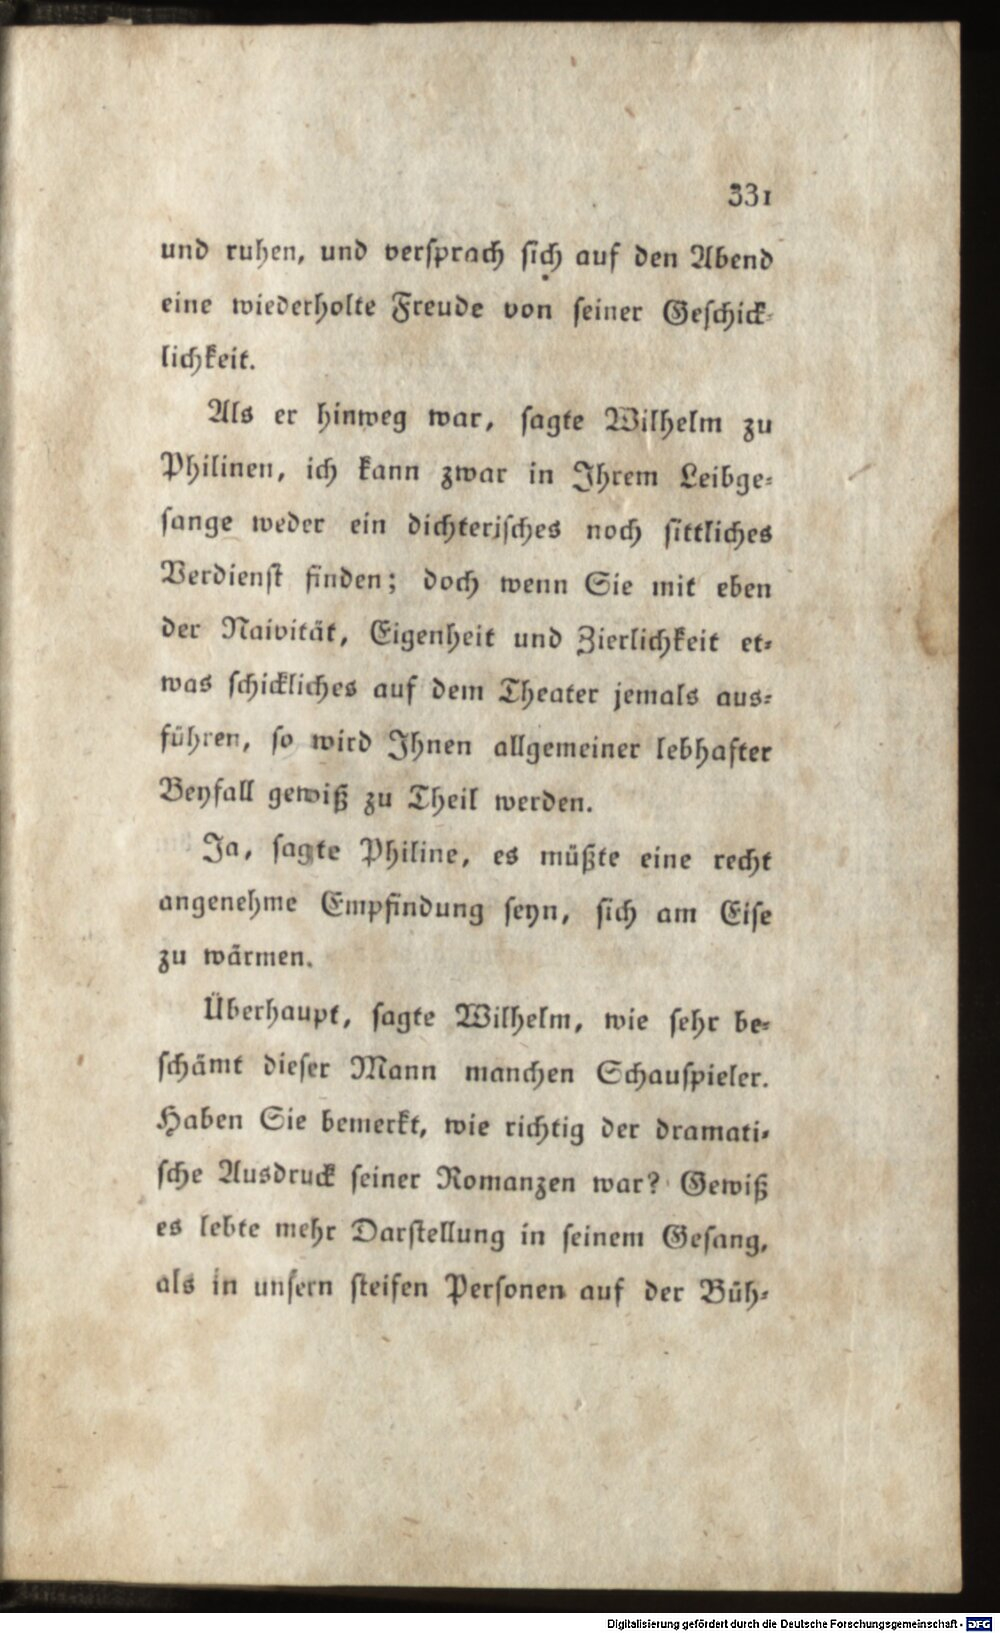 331
und ruhen, und verſprach ſich auf den Abend
eine wiederholte Freude von ſeiner Geſchick-
lichkeit.
Als er hinweg war, ſagte Wilhelm zu
Philinen, ich kann zwar in Ihrem Leibge-
ſange weder ein dichteriſches noch ſittliches
Verdienſt finden; doch wenn Sie mit eben
der Naivität, Eigenheit und Zierlichkeit et-
was ſchickliches auf dem Theater jemals aus-
führen, ſo wird Ihnen allgemeiner lebhafter
Beyfall gewiß zu Theil werden.
Ja, ſagte Philine, es müßte eine recht
angenehme Empfindung ſeyn, ſich am Eiſe
zu wärmen.
Überhaupt, ſagte Wilhelm, wie ſehr be-
ſchämt dieſer Mann manchen Schauſpieler.
Haben Sie bemerkt, wie richtig der dramati-
ſche Ausdruck ſeiner Romanzen war? Gewiß
es lebte mehr Darſtellung in ſeinem Geſang,
als in unſern ſteifen Perſonen auf der Büh-
Digitalisierung gefördert durch die Deutsche Forschungsgemeinschaft - DFG